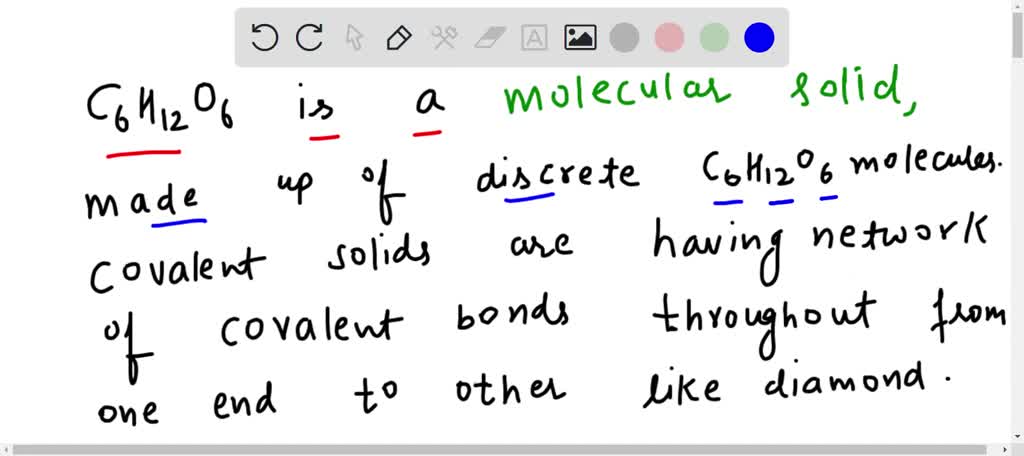 C₆H₁₂O₆ is a molecular solid,
made up of discrete C₆H₁₂O₆ molecules.
covalent solids are having network
of covalent bonds throughout from
one end to other like diamond.